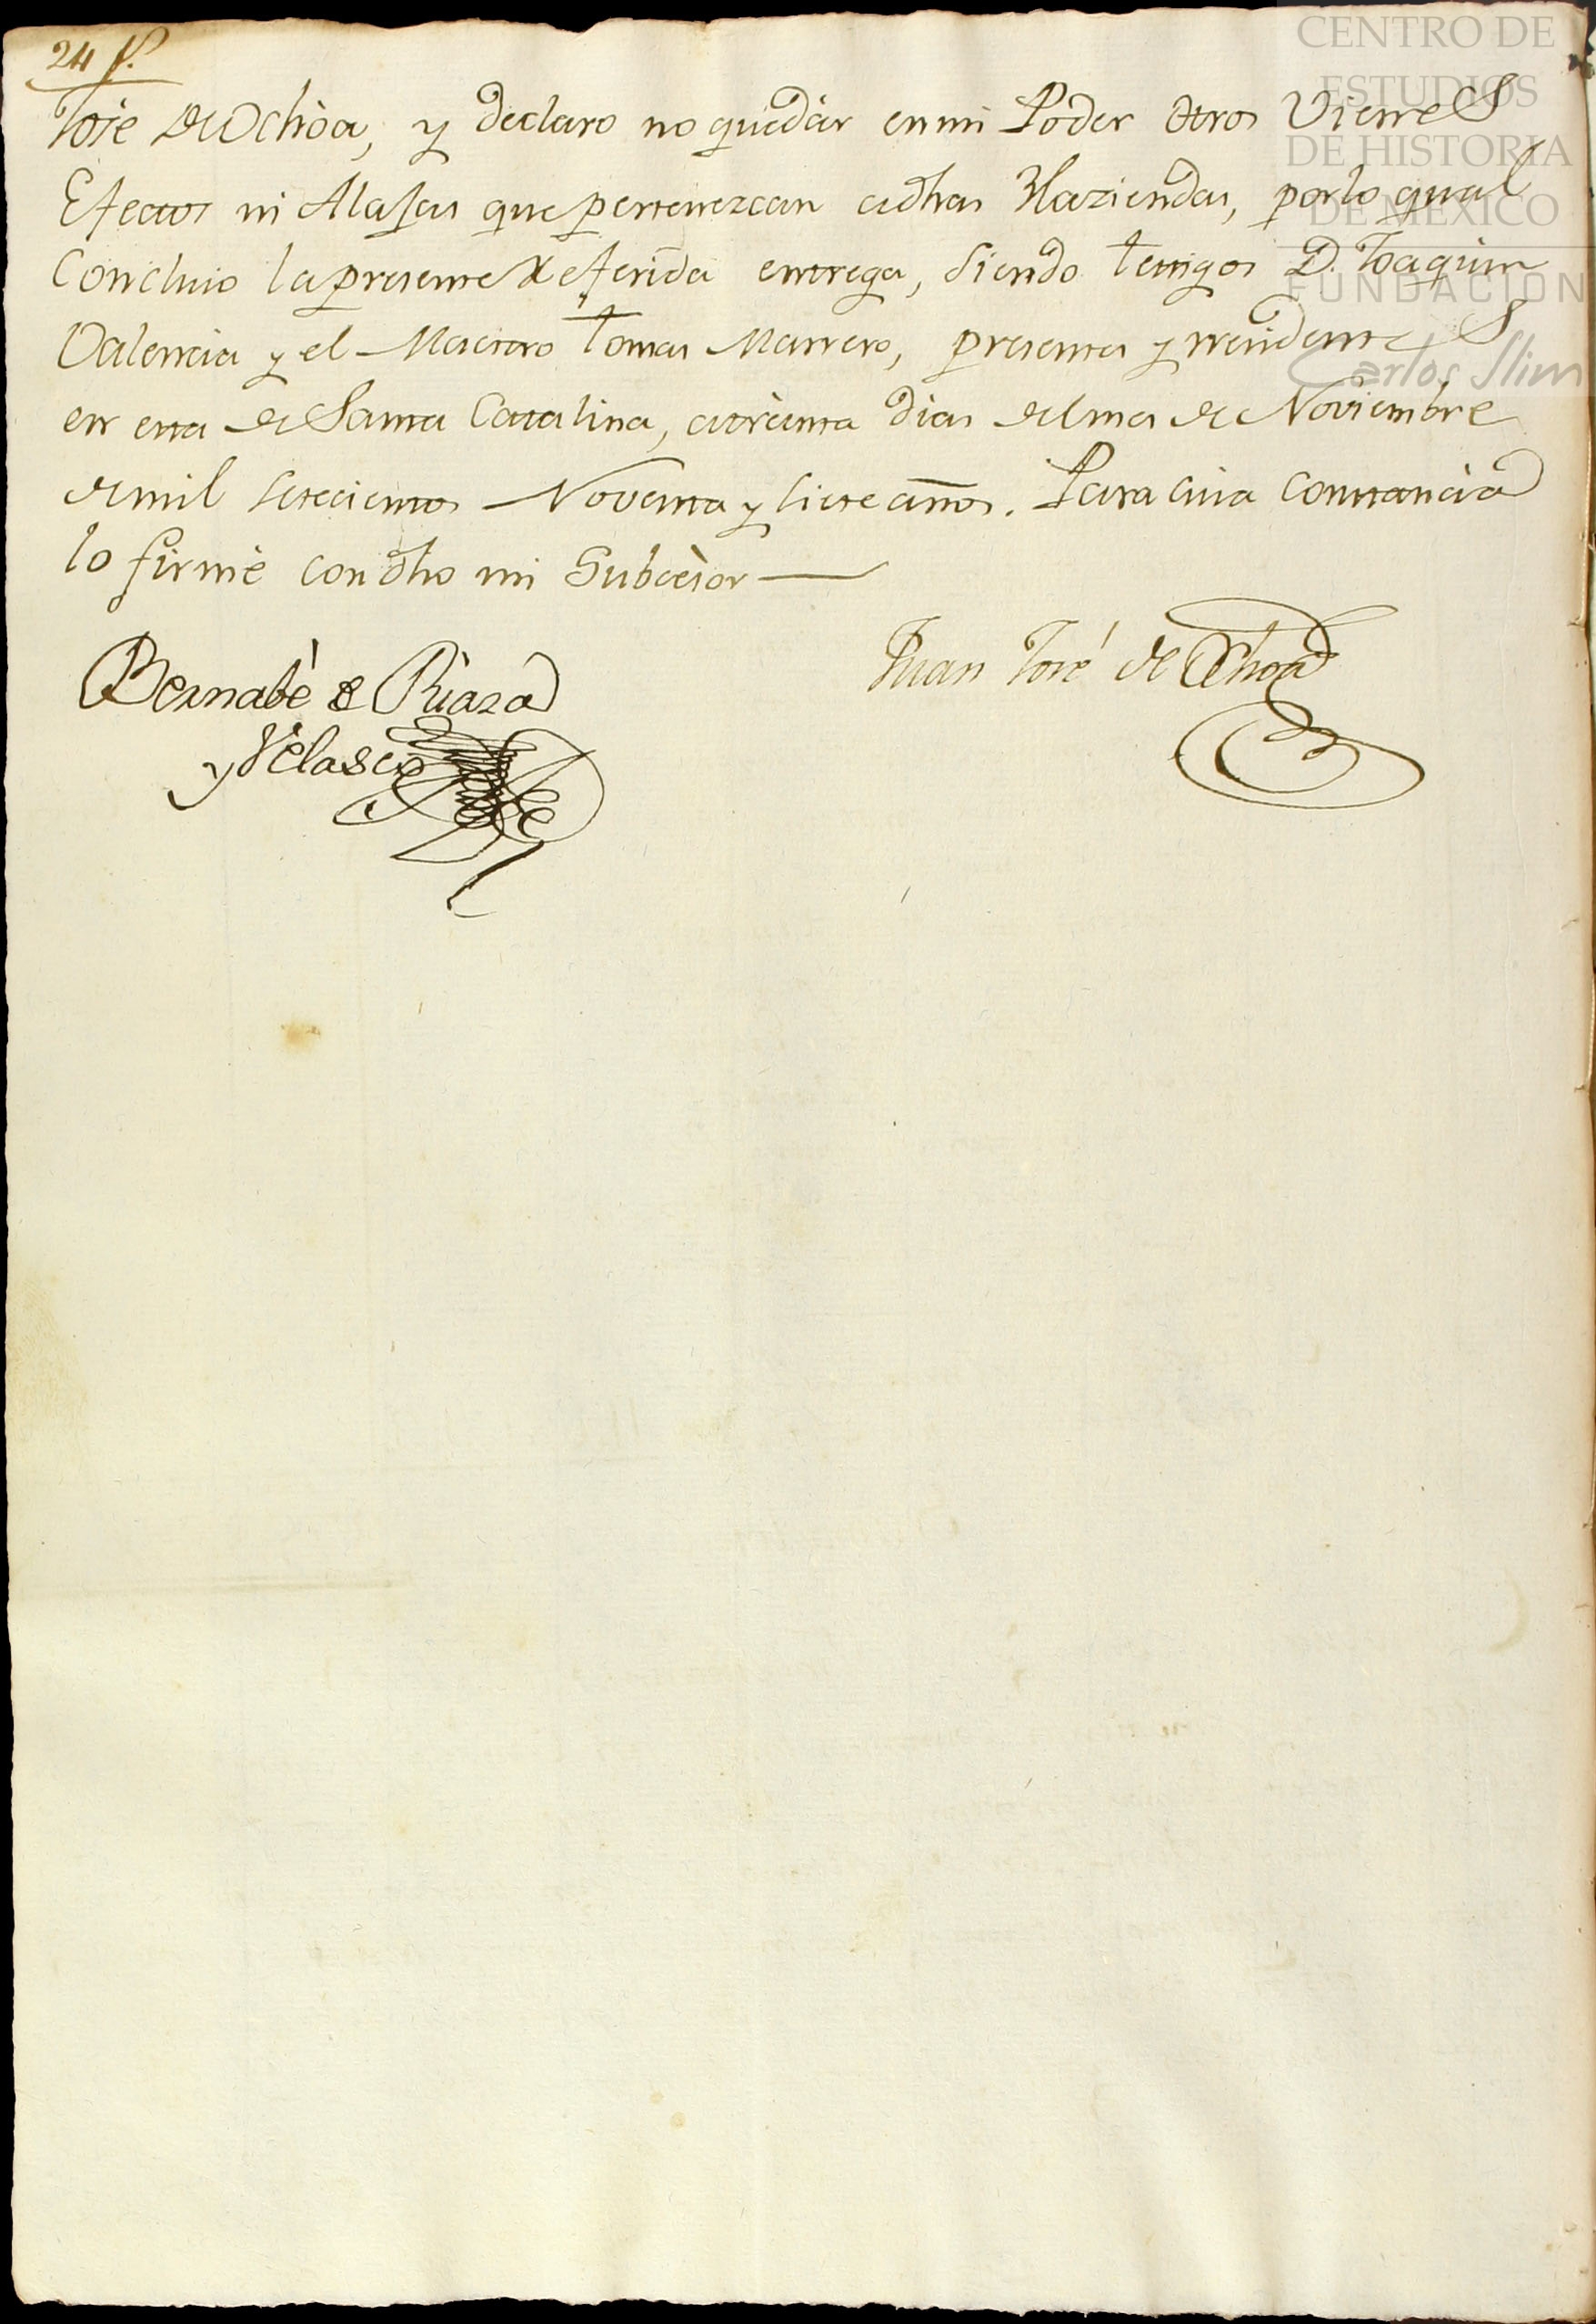 24 f.
CENTRO DE
ESTUDIOS
DE HISTORIA
DE MÉXICO
FUNDACIÓN
Carlos Slim
Jose de Ochòa, y declaro no quedàr en mi Poder otros Vienes
Efectos ni Alajas que pertenezcan a dhas Haziendas, por lo qual
Concluio la presente referida entrega, siendo testigos D. Joaquin
Valencia y el Maestro Tomas Marrero, presentes y rresidentes
en esta de Santa Catalina, a trèinta dias del mes de Noviembre
de mil setecientos Noventa y siete años. Para cuia constancia
lo firmè con dho mi Subcèsor
Bernabè de Riaza
y Vèlasco
Juan José de Ochoa